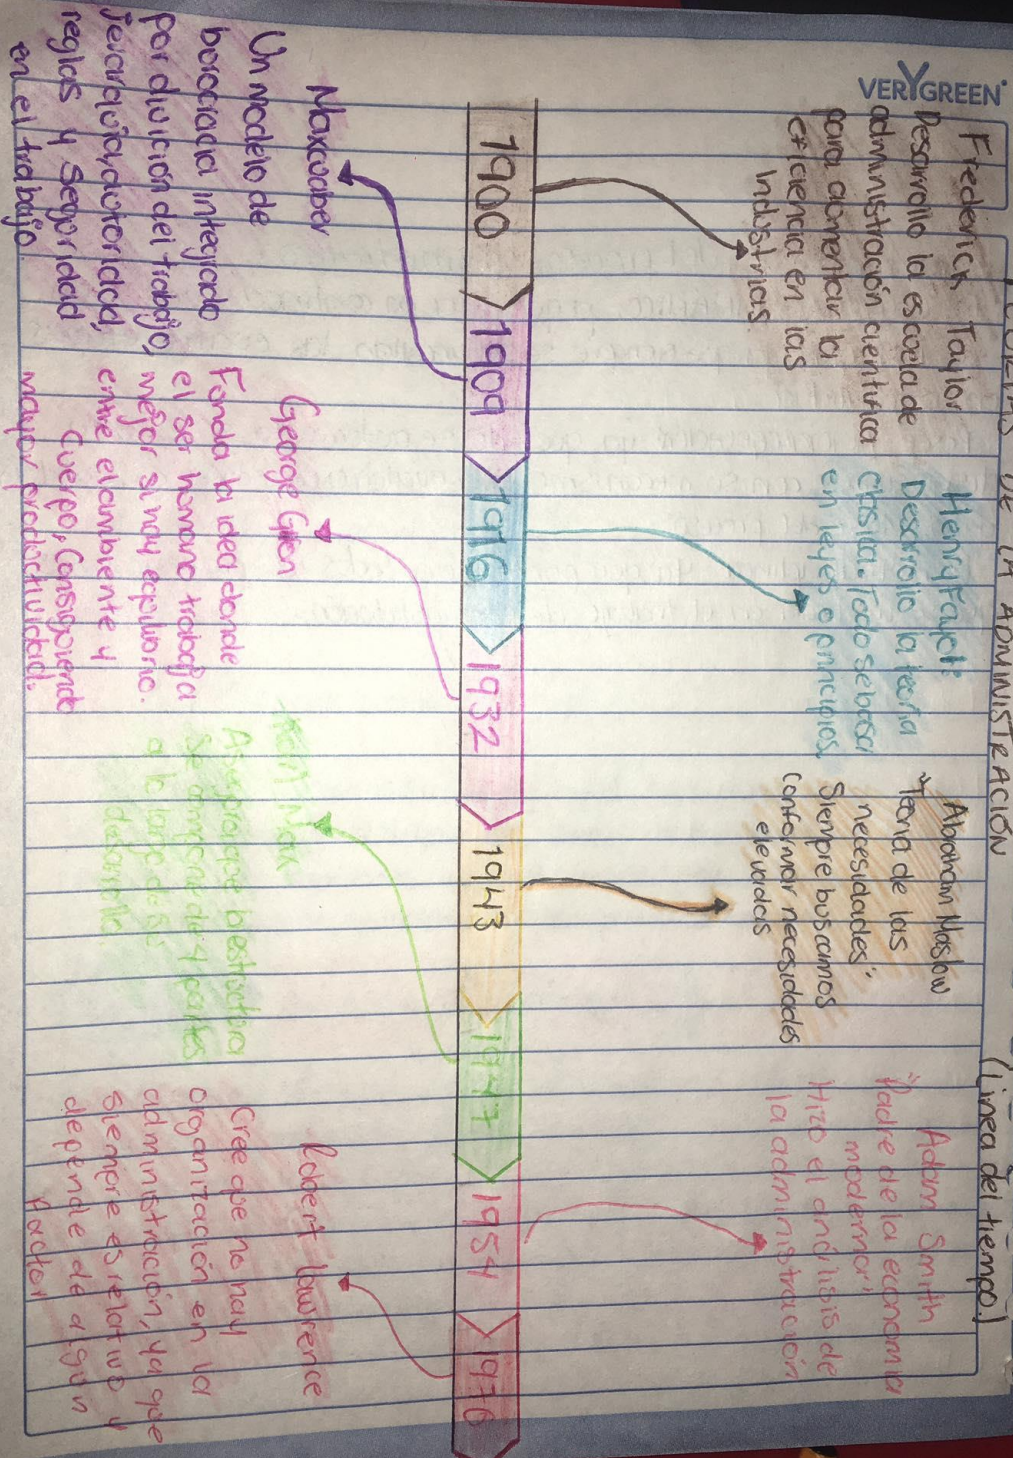 VERYGREEN
DE LA ADMINISTRACIÓN
(Linea del tiempo.)
Frederick Taylor
Desarrollo la escuela de
administración cientifica
para aumentar la
eficiencia en las
Industrias.
Henry Fayol:
Desarrollo la teoria
clasica. Todo se basa
en leyes o principios
Abraham Maslow
"Teoria de las
necesidades":
Siempre buscamos
conformar necesidades
elevadas
Adam Smith
"Padre de la economia
moderna",
Hizo el análisis de
la administración
1900
1909
1916
1932
1943
1947
1954
1976
Maxwaber
Un modelo de
borocracia integrado
por divición del trabajo,
jerarquia, autoridad,
reglas y seguridad
en el trabajo
George
Funda la idea donde
el ser humano trabaja
mejor si hay equilibrio.
entre el ambiente y
cuerpo, Consiguiendo
mayor productividad.
a lo largo de su
desarrollo.
Robert lawrence
Cree que no hay
organización en la
administración, ya que
siempre es relativo y
depende de algun
factor